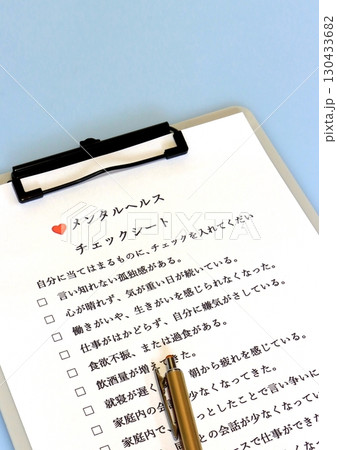 メンタルヘルス
チェックシート
自分に当てはまるものに、チェックを入れてくだい
□ 言い知れない孤独感がある。
□ 心が晴れず、気が重い日が続いている。
□ 働きがいや、生きがいを感じられなくなった。
□ 仕事がはかどらず、自分に嫌気がさしている。
□ 食欲不振、または過食がある。
□ 飲酒量が増えた。
□ 就寝が遅く 朝から疲れを感じている。
□ 家庭内の会 少なくなってきた。
□ 家庭内で っとしたことで言い争いに
との会話が少なくなってい
ースで仕事ができ
PIXTA
130433682